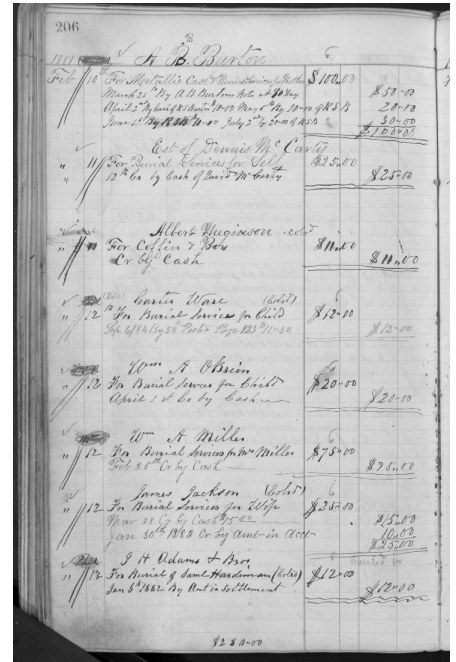 206
1881 A B. Burton
Feb 10th For Metallic Case & Burial services for Mother $100.00
March 25th By A B Burtons Note at 90 day $50.00
April 2nd By Cash of R S Burton 10.00 May 6th By 10.00 of R S B 20.00
June 1st By R S B 10.00 July 2nd By 20.00 of R S B 30.00
$100.00
Est of Dennis McCarty
" 11 For Burial Services for Self $25.00
" 12th Cr by Cash of David McCarty $25.00
Albert Megginson cold
" 11 For Coffin & Box $11.00
Cr by Cash $11.00
Carter Ware (Cold)
" 12 For Burial Services for Child $12.00
$12.00
Wm A OBrien
" 12 For Burial Serves for Child $20.00
April 1st Cr by Cash $20.00
Wm A Miller
" 12 For Burial Services for Mrs Miller $75.00
Feb 25th Cr by Cash $75.00
James Jackson (Cold)
" 12 For Burial Services for Wife $25.00
Mar 28 Cr by Cash $15.00 $15.00
Jan 30th 1882 Cr by Amt in Acct 10.00
$25.00
J H Adams & Bro
" 12 For Burial of Saml Hardiman (Cold) $12.00
Jan 6th 1882 By Amt in Settlement $12.00
$280.00